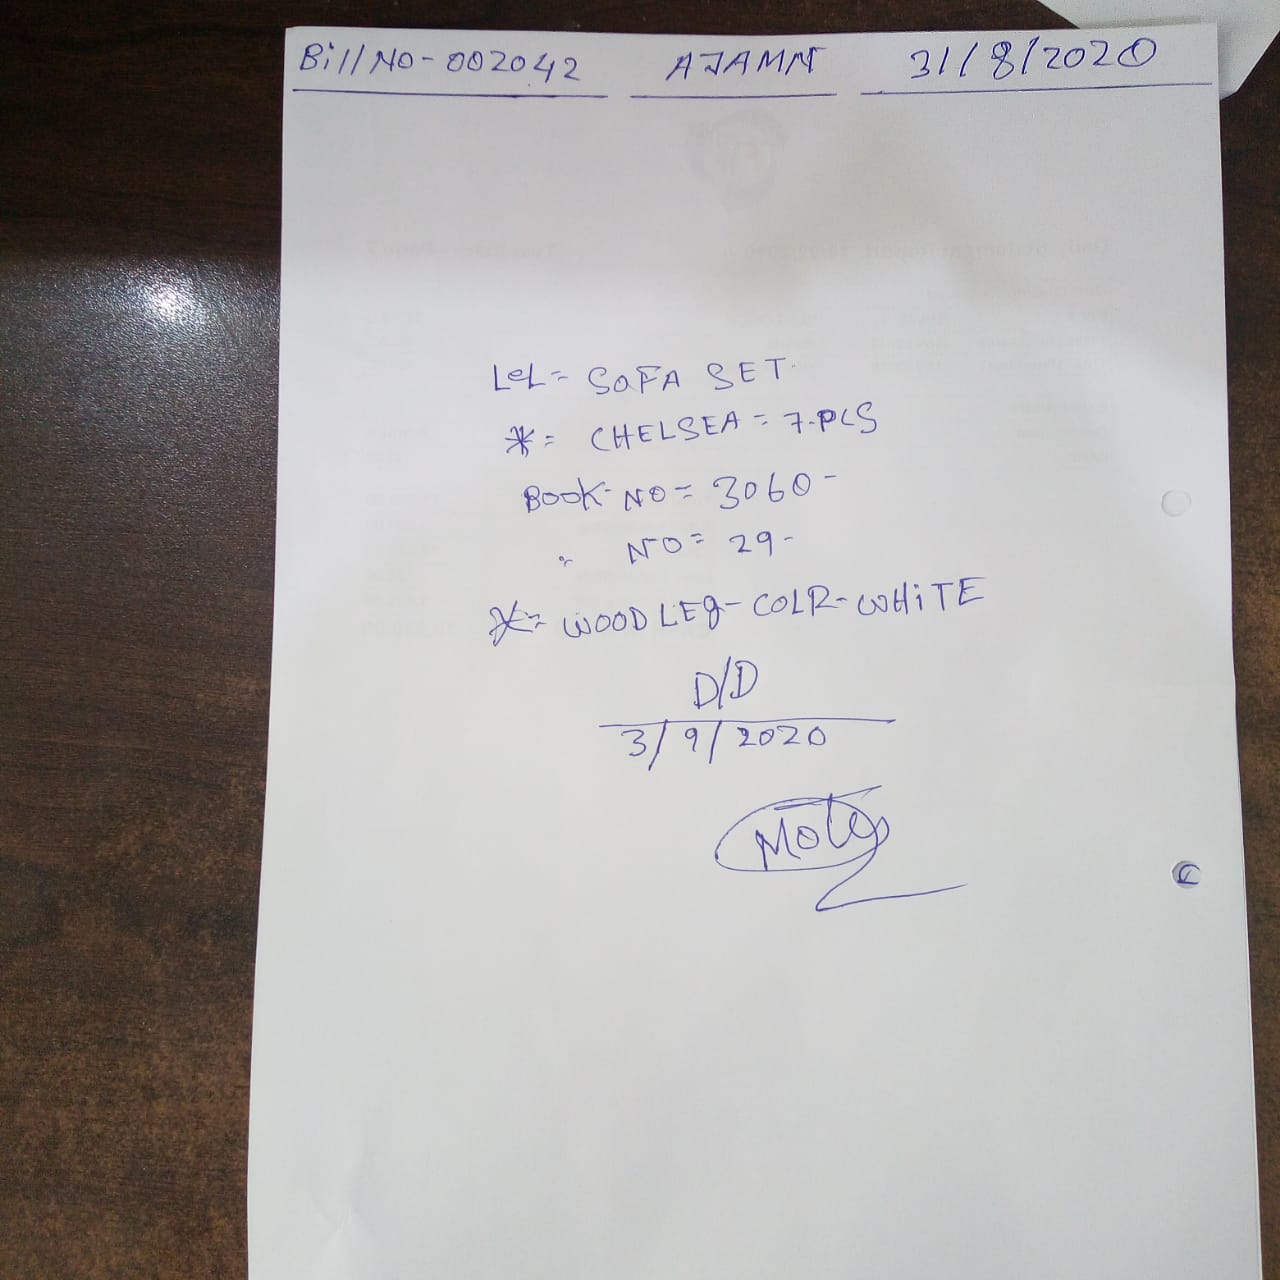 Bill NO - 002042 AJAMN 31/8/2020
LeL = SOFA SET
* = CHELSEA = 7.PCS
BOOK - NO = 3060 -
" NO = 29 -
* = WOOD LEg - COLR - WHiTE
D/D
3/9/2020